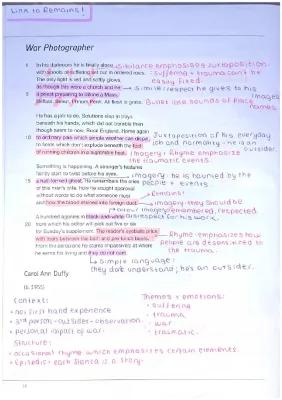 Link to Remains!
War Photographer
In his darkroom he is finally alone
with spools of suffering set out in ordered rows.
The only light is red and softly glows,
as though this were a church and he
a priest preparing to intone a Mass.
Belfast. Beirut. Phnom Penh. All flesh is grass.
sibilance emphasises juxtaposition.
suffering + trauma can't be
easily fixed.
simile: respect he gives to his
images
names.
He has a job to do. Solutions slop in trays
beneath his hands, which did not tremble then
though seem to now. Rural England. Home again
to ordinary pain which simple weather can dispel,
to fields which don't explode beneath the feet
of running children in a nightmare heat.
Juxtaposition of his everyday
job and normality - he is an
outsider.
Imagery + Rhyme emphasize
the traumatic events.
Something is happening. A stranger's features
faintly start to twist before his eyes,
a half-formed ghost. He remembers the cries
of this man's wife, how he sought approval
without words to do what someone must
and how the blood stained into foreign dust.
imagery: he is haunted by the
people + events.
Remains!
imagery: they should be
remembered, respected.
A hundred agonies in black-and-white
from which his editor will pick out five or six
for Sunday's supplement. The reader's eyeballs prick
with tears between the bath and pre-lunch beers.
From the aeroplane he stares impassively at where
he earns his living and they do not care.
disrespect for his work.
Rhyme emphasizes how
people are desensitized to
the trauma.
simple language:
they don't understand; he's an outsider.
Carol Ann Duffy
(b. 1955)
Context:
• no first hand experience
• 3rd person - outsider - observation.
• personal impact of war.
Structure:
• occasional rhyme which emphasizes certain elements.
• Episodic - each stanza is a story.
Themes + emotions:
• suffering
• trauma
• war
• traumatic.